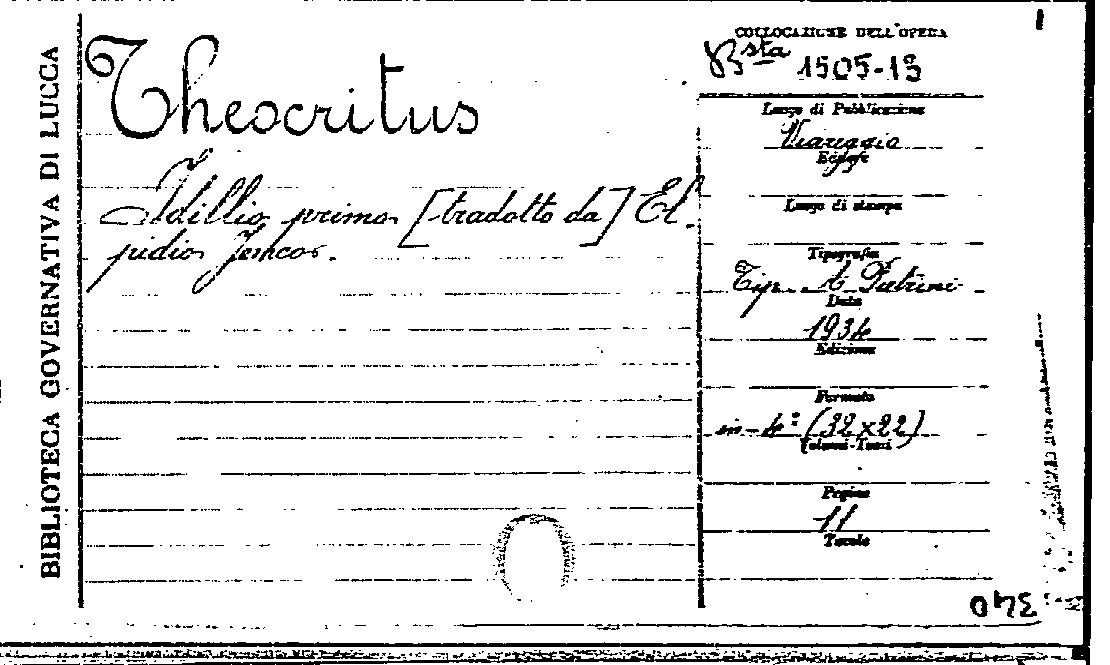 BIBLIOTECA GOVERNATIVA DI LUCCA
Theocritus
Idillio primo [tradotto da] El
pidio Jenco.
COLLOCAZIONE DELL'OPERA
Bsta 1505-13
Luogo di Pubblicazione
Viareggio
Luogo di stampa
Tipografia
Tip. A Pétrini
Data
1934
Edizione
Formato
in-4º (32x22)
Volumi-Tomi
Pagine
11
Tavole
340